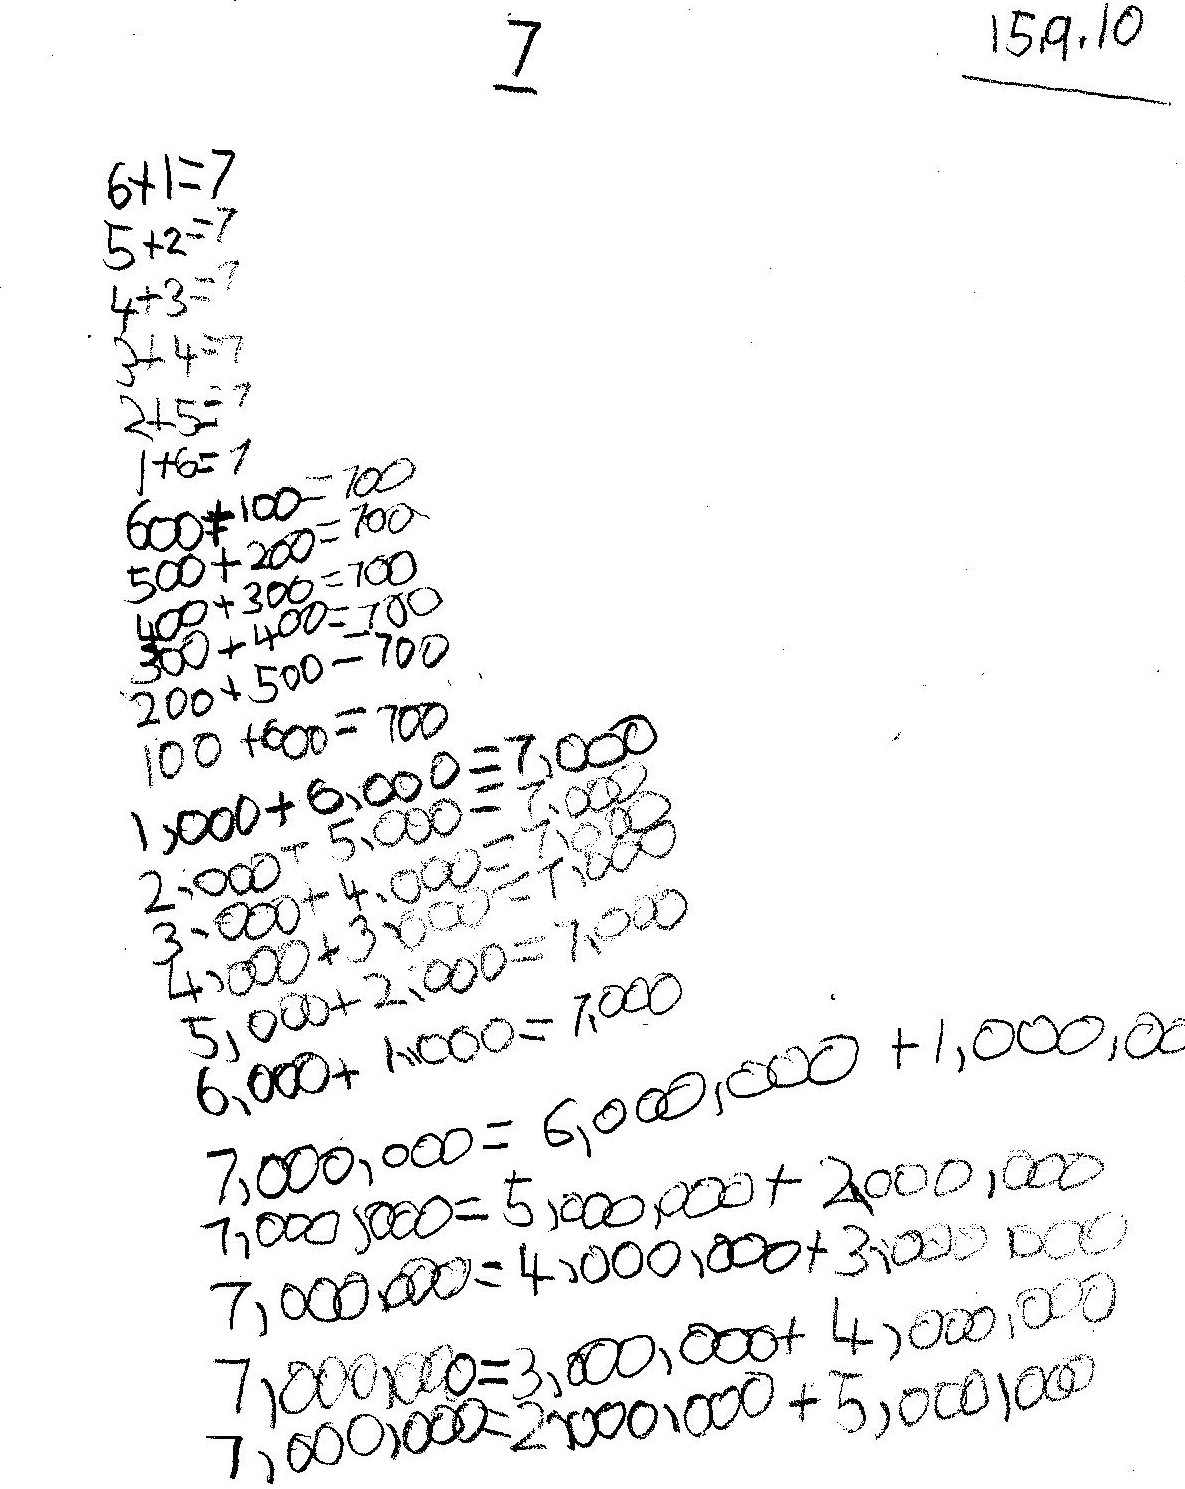 7
15.9.10
6+1=7
5+2=7
4+3=7
3+4=7
2+5=7
1+6=7
600+100=700
500+200=700
400+300=700
300+400=700
200+500=700
100+600=700
1,000+6,000=7,000
2,000+5,000=7,000
3,000+4,000=7,000
4,000+3,000=7,000
5,000+2,000=7,000
6,000+1,000=7,000
7,000,000=6,000,000+1,000,00
7,000,000=5,000,000+2,000,000
7,000,000=4,000,000+3,000,000
7,000,000=3,000,000+4,000,000
7,000,000=2,000,000+5,000,000